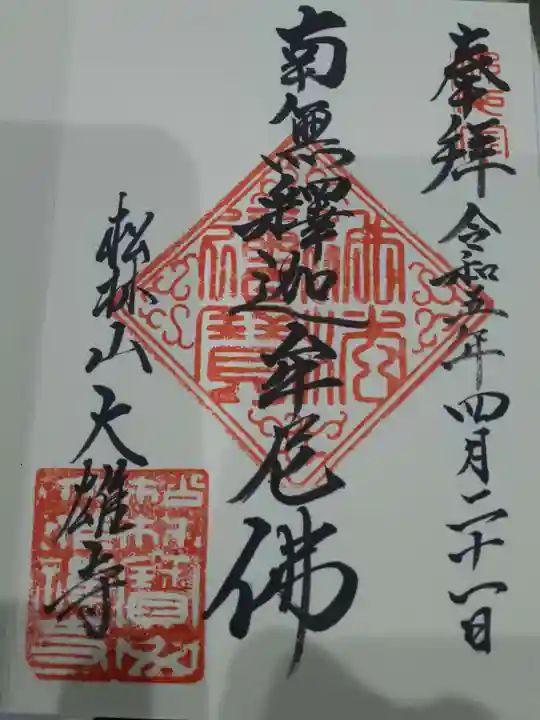 奉拝 令和五年四月二十一日
南無釋迦牟尼佛
松林山 大雄寺
佛法僧寳